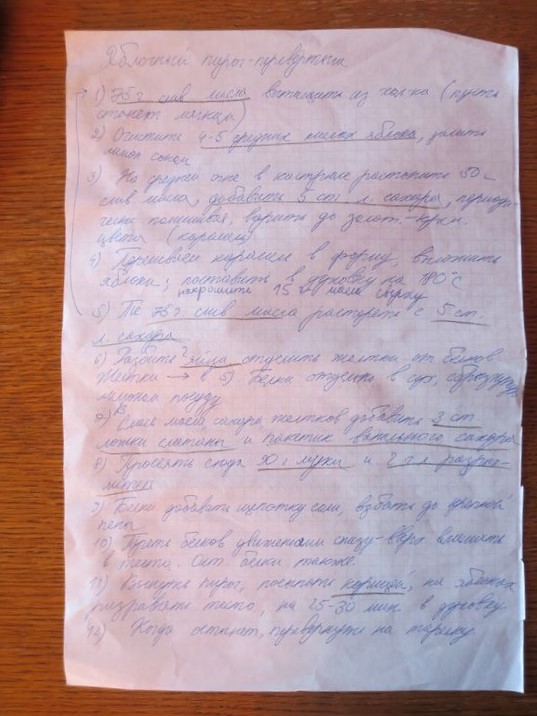 Яблочный пирог-перевертыш
1) 75 г слив масла вытащить из хол-ка (пусть
станет мягким)
2) Очистить 4-5 средних кислых яблока, залить
лимон соком
3) На среднем огне в кастрюле растопить 50 г
слив масла, добавить 5 ст. л. сахара, периоди-
чески помешивая, варить до золот.-корич.
цвета (карамель)
4) Переливаем карамель в форму, выложить
яблоки, поставить в духовку на 180°C
накрошить 15 г масла сверху
5) Те 75 г слив масла растереть с 5 ст.
л. сахара
6) Разбить яйца отделить желтки от белков
Желтки → в 5) Белки отдельно в сух,
посуду
7) В смесь масла сахара желтков добавить 3 ст
ложки сметаны и пакетик ванильного сахара
8) Просеять сюда 90 г муки и 2 ч л разрых-
лителя
9) Белки добавить щепотку соли, взбить до крепкой
пены
10) Треть белков движениями снизу-вверх вмешать
в тесто. Ост. белки также.
11) Вынуть пирог, посыпать корицей, на яблоках
разровнять тесто, на 25-30 мин в духовку
12) Когда остынет, перевернуть на тарелку